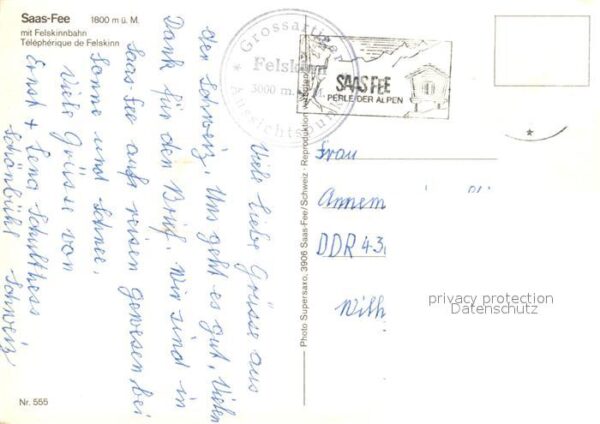 Saas-Fee 1800 m ü. M.
mit Felskinnbahn
Téléphérique de Felskinn
Grossartiger
Felskinn
3000 m.
Aussichtspunkt
SAAS FEE
PERLE DER ALPEN
Viele liebe Grüsse aus
der Schweiz. Uns geht es gut, Vielen
Dank für den Brief. Wir sind in
Saas-Fee auf reisen gewesen bei
Sonne und Schnee.
Viele Grüsse von
Ernst + Lena Schulthess
Schönbühl Schweiz
Photo Supersaxo, 3906 Saas-Fee/Schweiz - Reproduktion
Frau
Annem
DDR 43
Wilh
privacy protection
Datenschutz
Nr. 555